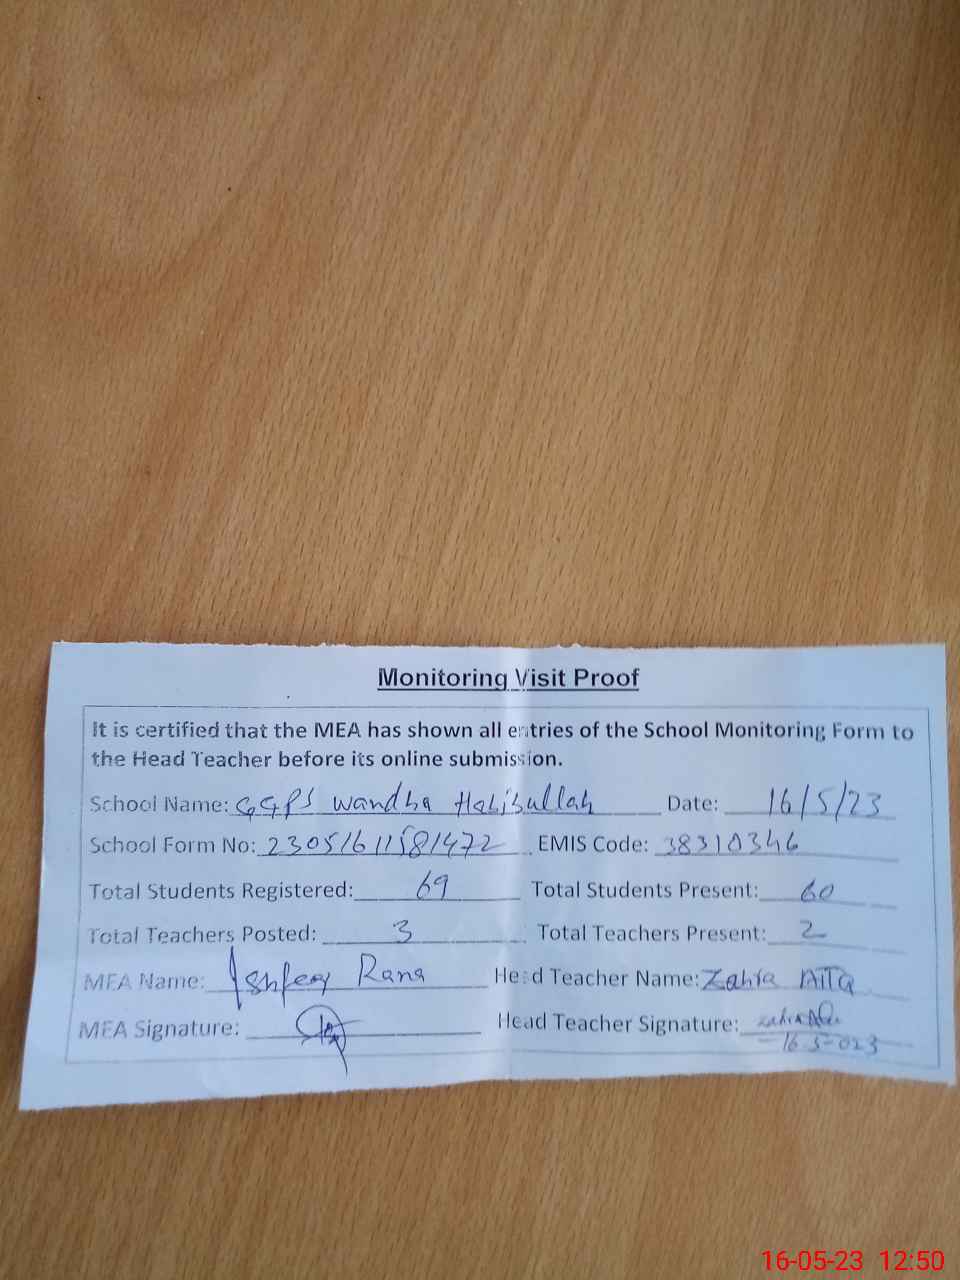 Monitoring Visit Proof
It is certified that the MEA has shown all entries of the School Monitoring Form to
the Head Teacher before its online submission.
School Name: GGPS Wandha Habibullah Date: 16/5/23
School Form No: 23051611581472 EMIS Code: 38310346
Total Students Registered: 69 Total Students Present: 60
Total Teachers Posted: 3 Total Teachers Present: 2
MEA Name: Rana Head Teacher Name: Zahra
MEA Signature: Head Teacher Signature:
16-5-023
16-05-23 12:50